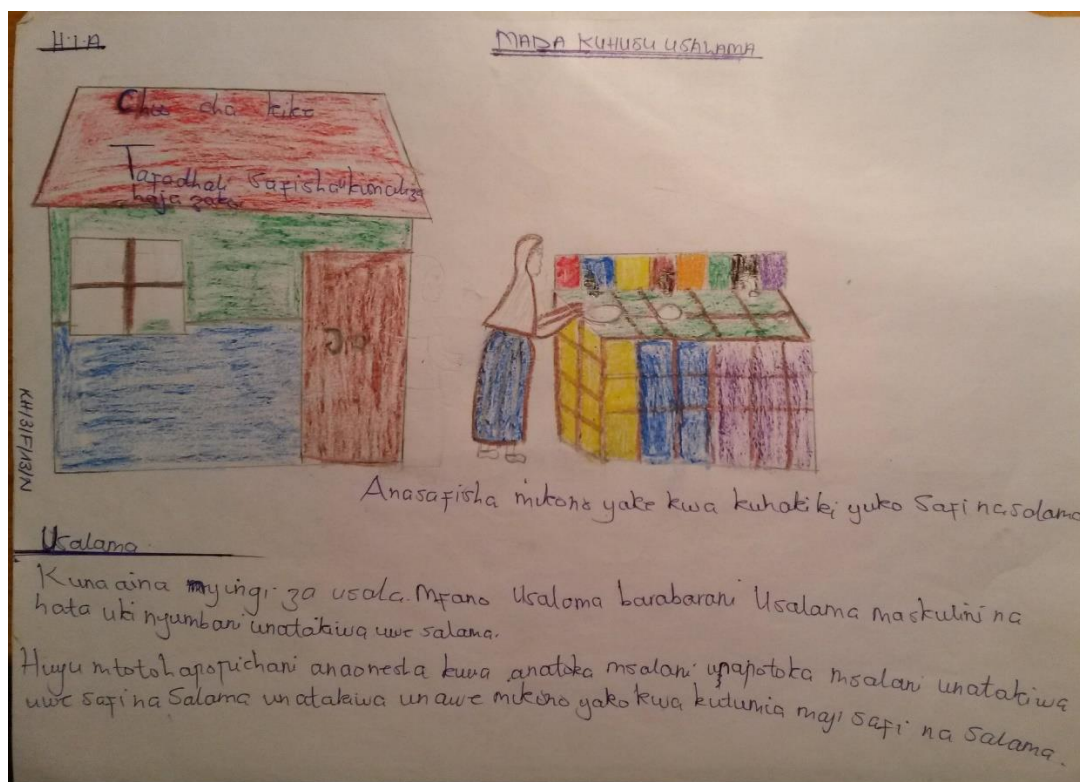 H.I.A
MADA KUHUSU USALAMA
Choo cha kike
Tafadhali safisha ukimaliza
haja zako
KH/3/F/13/N
Anasafisha mikono yake kwa kuhakiki yuko Safi na salama
Usalama
Kuna aina myingi za usala. Mfano Usalama barabarani Usalama maskulini na
hata uki nyumbani unatakiwa uwe salama.
Huyu mtoto hapo pichani anaonesha kuwa anatoka msalani unapotoka msalani unatakiwa
uwe safi na Salama unatakiwa unawe mikono yako kwa kutumia maji safi na salama.